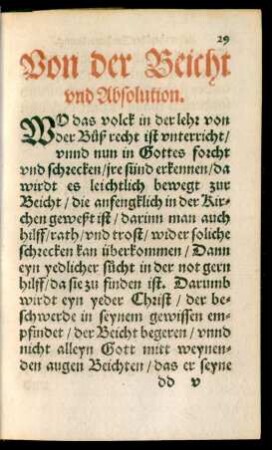 29
Von der Beicht
vnd Absolution.
WO das volck in der lehr von
der Büß recht ist vnterricht/
vnnd nun in Gottes forcht
vnd schrecken/jre sünd erkennen/da
wirdt es leichtlich bewegt zur
Beicht/die anfengklich in der Kir-
chen gewest ist/darinn man auch
hilff/rath/vnd trost/wider soliche
schrecken kan überkommen/Dann
eyn yedlicher sücht in der not gern
hilff/da sie zu finden ist. Darumb
wirdt eyn yeder Christ/der be-
schwerde in seynem gewissen em-
pfindet/der Beicht begeren/vnnd
nicht alleyn Gott mitt weynen-
den augen Beichten/das er seyne
dd v